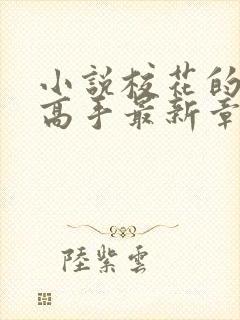 小說校花的
高手最新章
陸紫雲